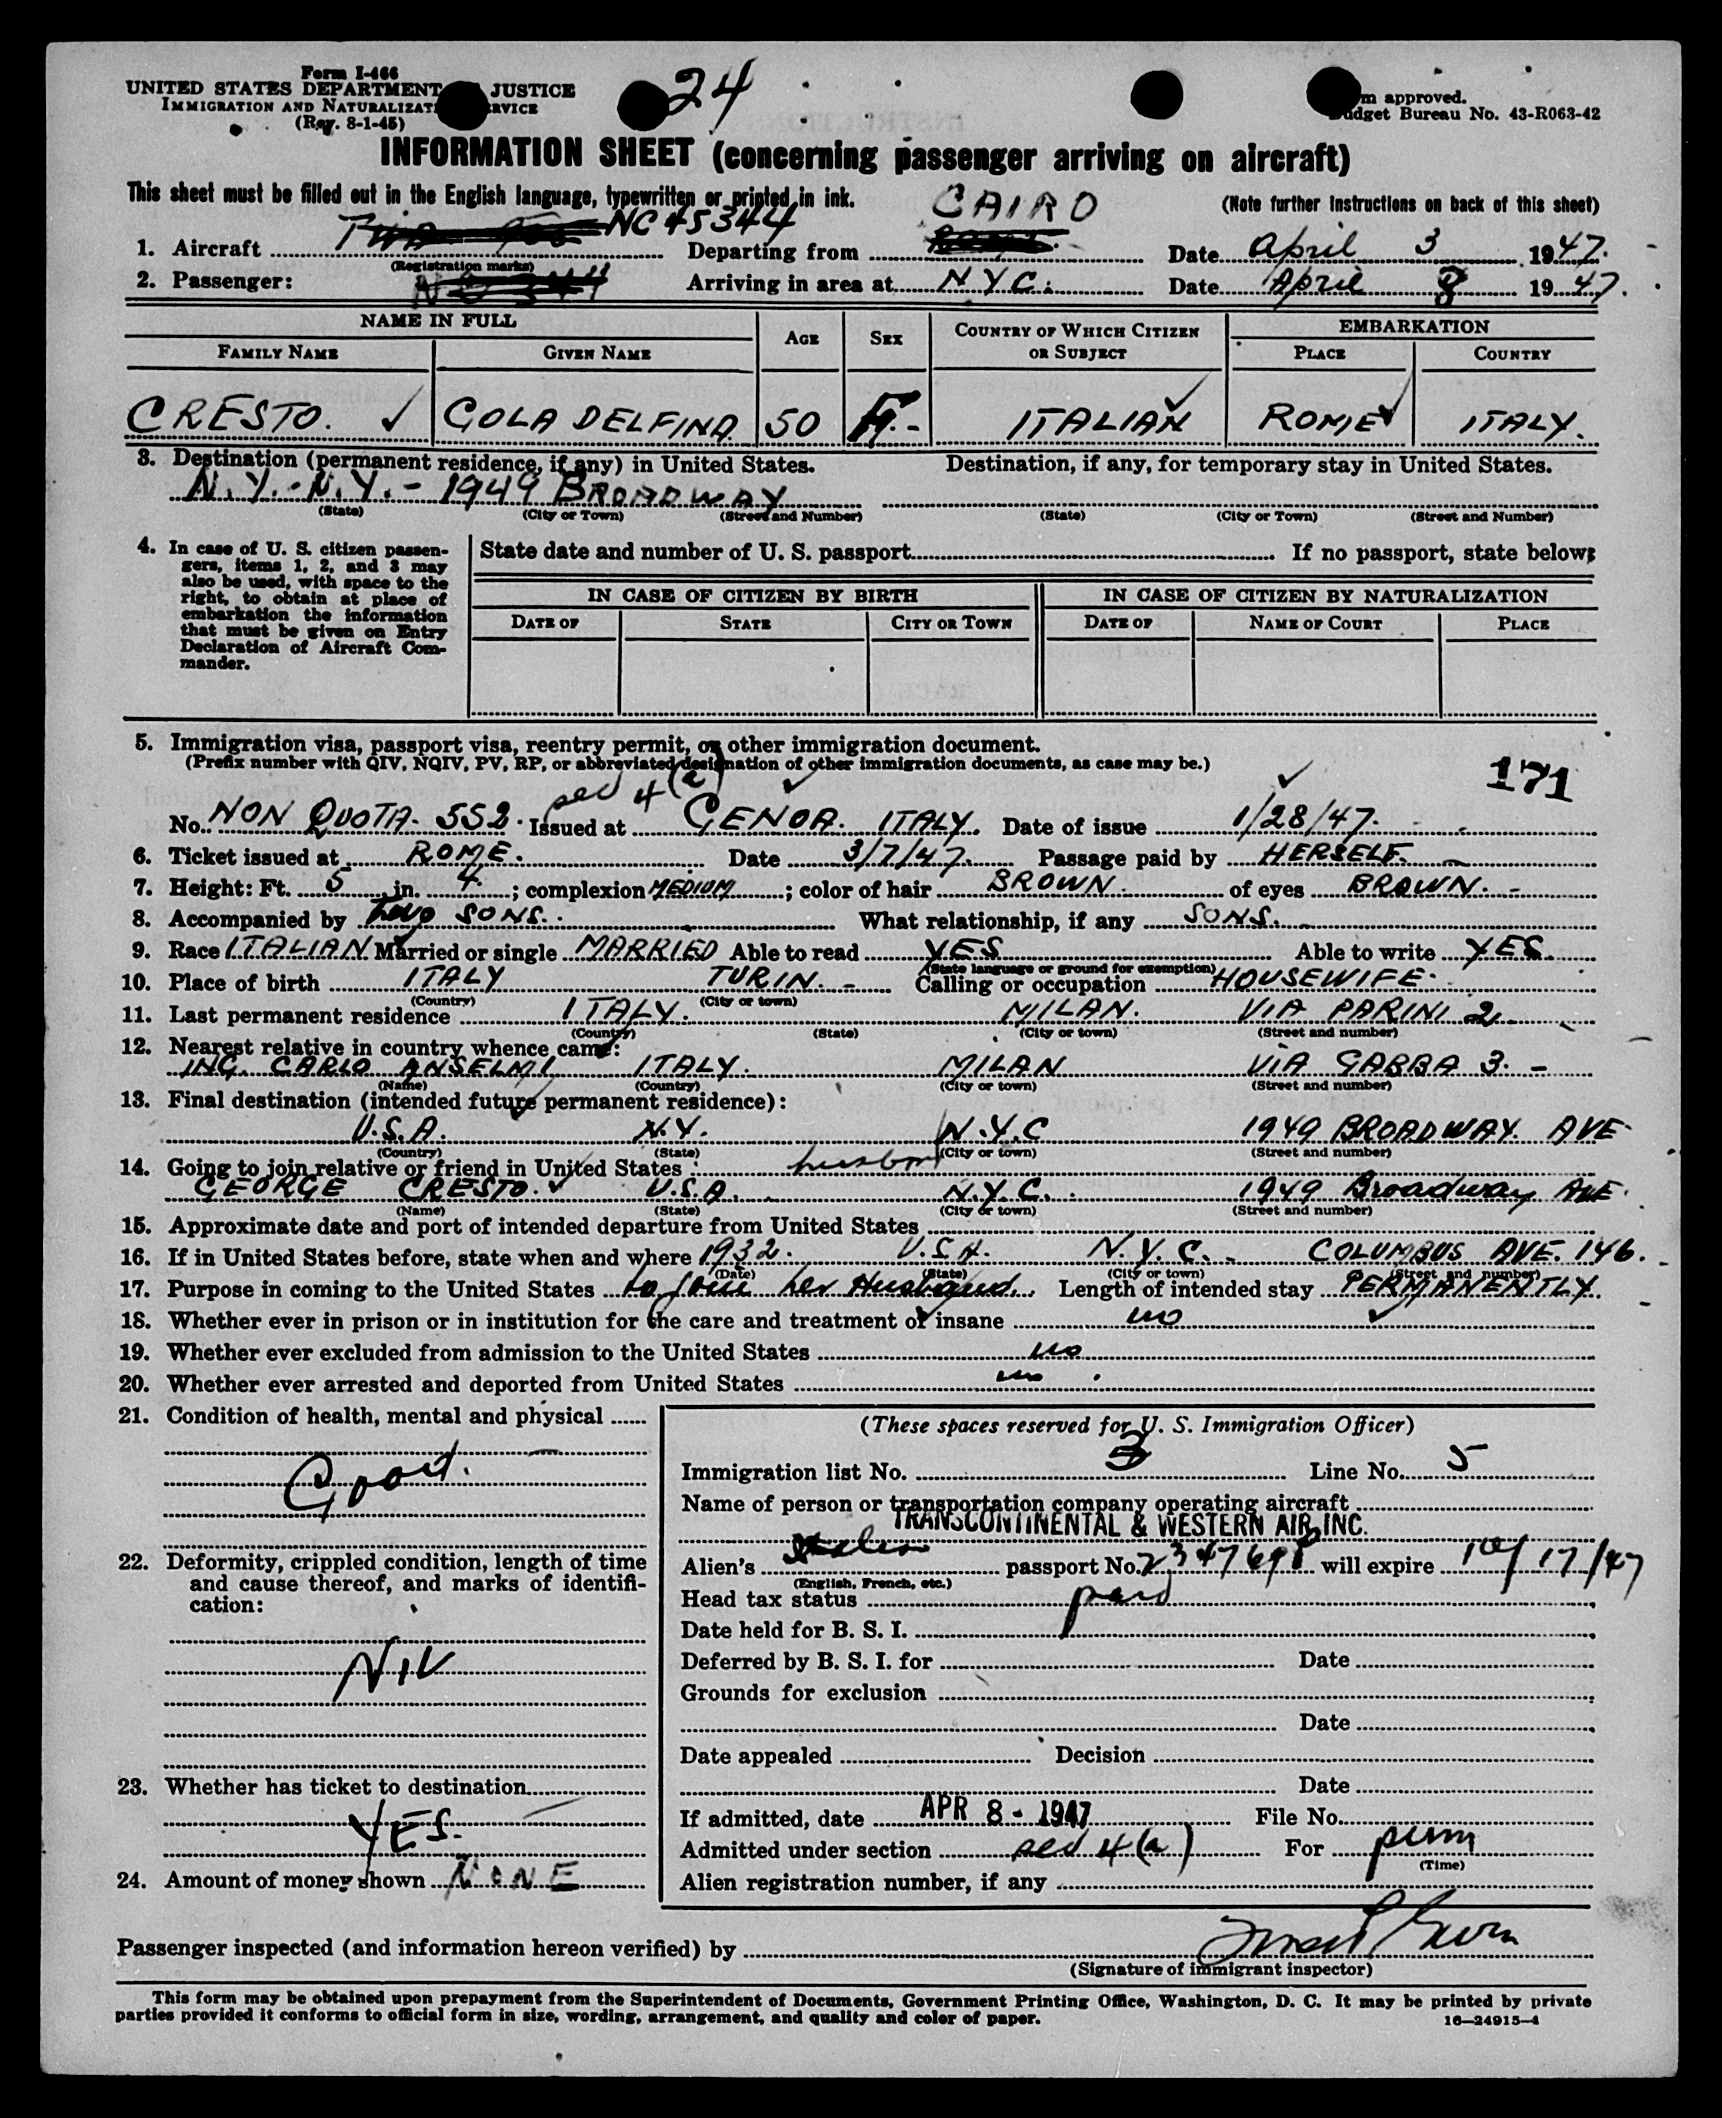 Form I-466
UNITED STATES DEPARTMENT JUSTICE
IMMIGRATION AND NATURALIZAT RVICE
(Rev. 8-1-45)
24
m approved.
udget Bureau No. 43-R063-42
INFORMATION SHEET (concerning passenger arriving on aircraft)
This sheet must be filled out in the English language, typewritten or printed in ink. (Note further instructions on back of this sheet)
1. Aircraft TWA NC 45344 Departing from CAIRO Date April 3 1947.
(Registration marks)
2. Passenger: Arriving in area at N.Y.C. Date April 8 1947.
NAME IN FULL AGE SEX COUNTRY OF WHICH CITIZEN OR SUBJECT EMBARKATION
FAMILY NAME GIVEN NAME PLACE COUNTRY
CRESTO. GOLA DELFINA 50 F.- ITALIAN ROME ITALY.
3. Destination (permanent residence, if any) in United States. Destination, if any, for temporary stay in United States.
N.Y. - N.Y. - 1949 BROADWAY
(State) (City or Town) (Street and Number) (State) (City or Town) (Street and Number)
4. In case of U. S. citizen passen-
gers, items 1, 2, and 3 may
also be used, with space to the
right, to obtain at place of
embarkation the information
that must be given on Entry
Declaration of Aircraft Com-
mander.
State date and number of U. S. passport If no passport, state below:
IN CASE OF CITIZEN BY BIRTH IN CASE OF CITIZEN BY NATURALIZATION
DATE OF STATE CITY OR TOWN DATE OF NAME OF COURT PLACE
5. Immigration visa, passport visa, reentry permit, or other immigration document.
(Prefix number with QIV, NQIV, PV, RP, or abbreviated designation of other immigration documents, as case may be.)
171
sec 4 (a)
No. NON QUOTA. 552. Issued at GENOA. ITALY. Date of issue 1/28/47.
6. Ticket issued at ROME. Date 3/7/47. Passage paid by HERSELF.
7. Height: Ft. 5 in. 4. ; complexion MEDIUM ; color of hair BROWN. of eyes BROWN. -
8. Accompanied by two SONS. What relationship, if any SONS.
9. Race ITALIAN Married or single MARRIED Able to read YES Able to write YES.
(State language or ground for exemption)
10. Place of birth ITALY TURIN. - Calling or occupation HOUSEWIFE.
(Country) (City or town)
11. Last permanent residence ITALY. MILAN. VIA PARINI 2
(Country) (State) (City or town) (Street and number)
12. Nearest relative in country whence came:
ING. CARLO ANSELMI ITALY. MILAN VIA GABBA 3. -
(Name) (Country) (City or town) (Street and number)
13. Final destination (intended future permanent residence):
U.S.A. N.Y. N.Y.C 1949 BROADWAY. AVE
(Country) (State) (City or town) (Street and number)
14. Going to join relative or friend in United States
GEORGE CRESTO. U.S.A. N.Y.C. 1949 Broadway AVE.
(Name) (State) (City or town) (Street and number)
15. Approximate date and port of intended departure from United States
16. If in United States before, state when and where 1932. U.S.A. N.Y.C. - COLUMBUS AVE. 146.
(Date) (State) (City or town) (Street and number)
17. Purpose in coming to the United States to join her Husband. Length of intended stay PERMANENTLY.
18. Whether ever in prison or in institution for the care and treatment of insane no
19. Whether ever excluded from admission to the United States no
20. Whether ever arrested and deported from United States no
21. Condition of health, mental and physical
Good.
22. Deformity, crippled condition, length of time
and cause thereof, and marks of identifi-
cation:
NIV
23. Whether has ticket to destination
YES.
24. Amount of money shown NONE
(These spaces reserved for U. S. Immigration Officer)
Immigration list No. 3 Line No. 5
Name of person or transportation company operating aircraft
TRANSCONTINENTAL & WESTERN AIR, INC.
Alien's passport No. will expire 10/17/47
(English, French, etc.)
Head tax status paid
Date held for B. S. I.
Deferred by B. S. I. for Date
Grounds for exclusion
Date
Date appealed Decision
Date
If admitted, date APR 8 - 1947 File No.
Admitted under section sec 4 (a) For perm
(Time)
Alien registration number, if any
Passenger inspected (and information hereon verified) by
(Signature of immigrant inspector)
This form may be obtained upon prepayment from the Superintendent of Documents, Government Printing Office, Washington, D. C. It may be printed by private
parties provided it conforms to official form in size, wording, arrangement, and quality and color of paper.
16—24915-4